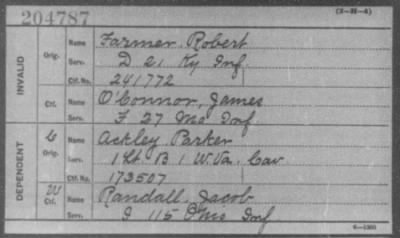 204787
(3-38-A)
INVALID
Orig.
Name Farmer, Robert
Serv. D 21 Ky Inf.
Ctf. No. 241772
Ctf.
Name O'Connor, James
Serv. F 27 Mo Inf
DEPENDENT
C
Orig.
Name Ackley Parker
Serv. 1 Lt. B 1 W.Va. Cav
Ctf. No. 173507
W
Ctf.
Name Randall, Jacob
Serv. 115 Inf